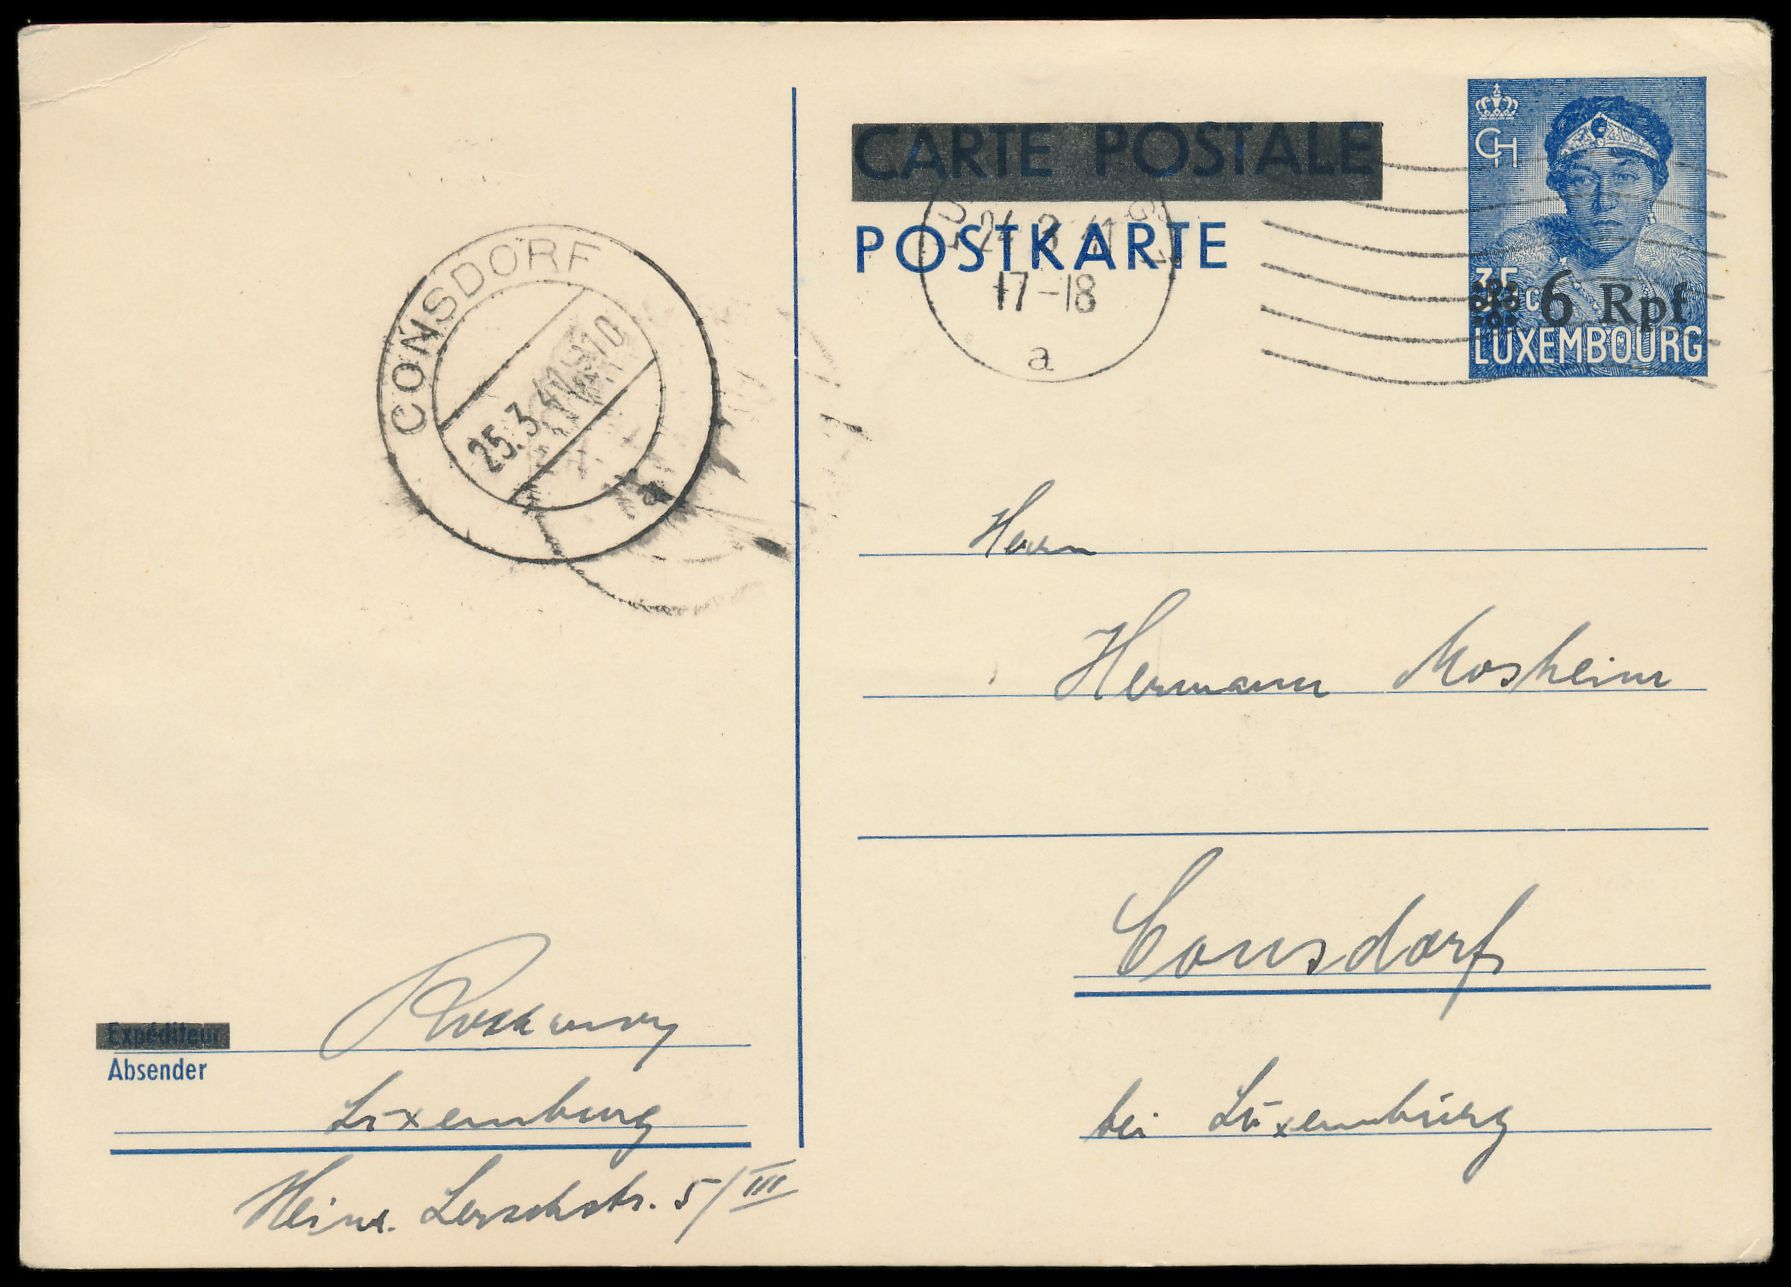 CARTE POSTALE
POSTKARTE
CH
35 c
6 Rpf
LUXEMBOURG
24.3.41
17-18
a
CONSDORF
25.3.41
a
Herrn
Hermann Mosheim
Consdorf
bei Luxemburg
Expéditeur
Absender
Luxemburg
Heinr. Lerschstr. 5/III